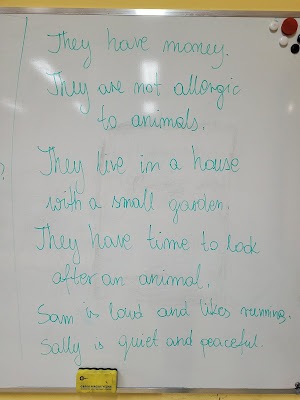 They have money.
They are not allergic
to animals.
They live in a house
with a small garden.
They have time to look
after an animal.
Sam is loud and likes running.
Sally is quiet and peaceful.
?